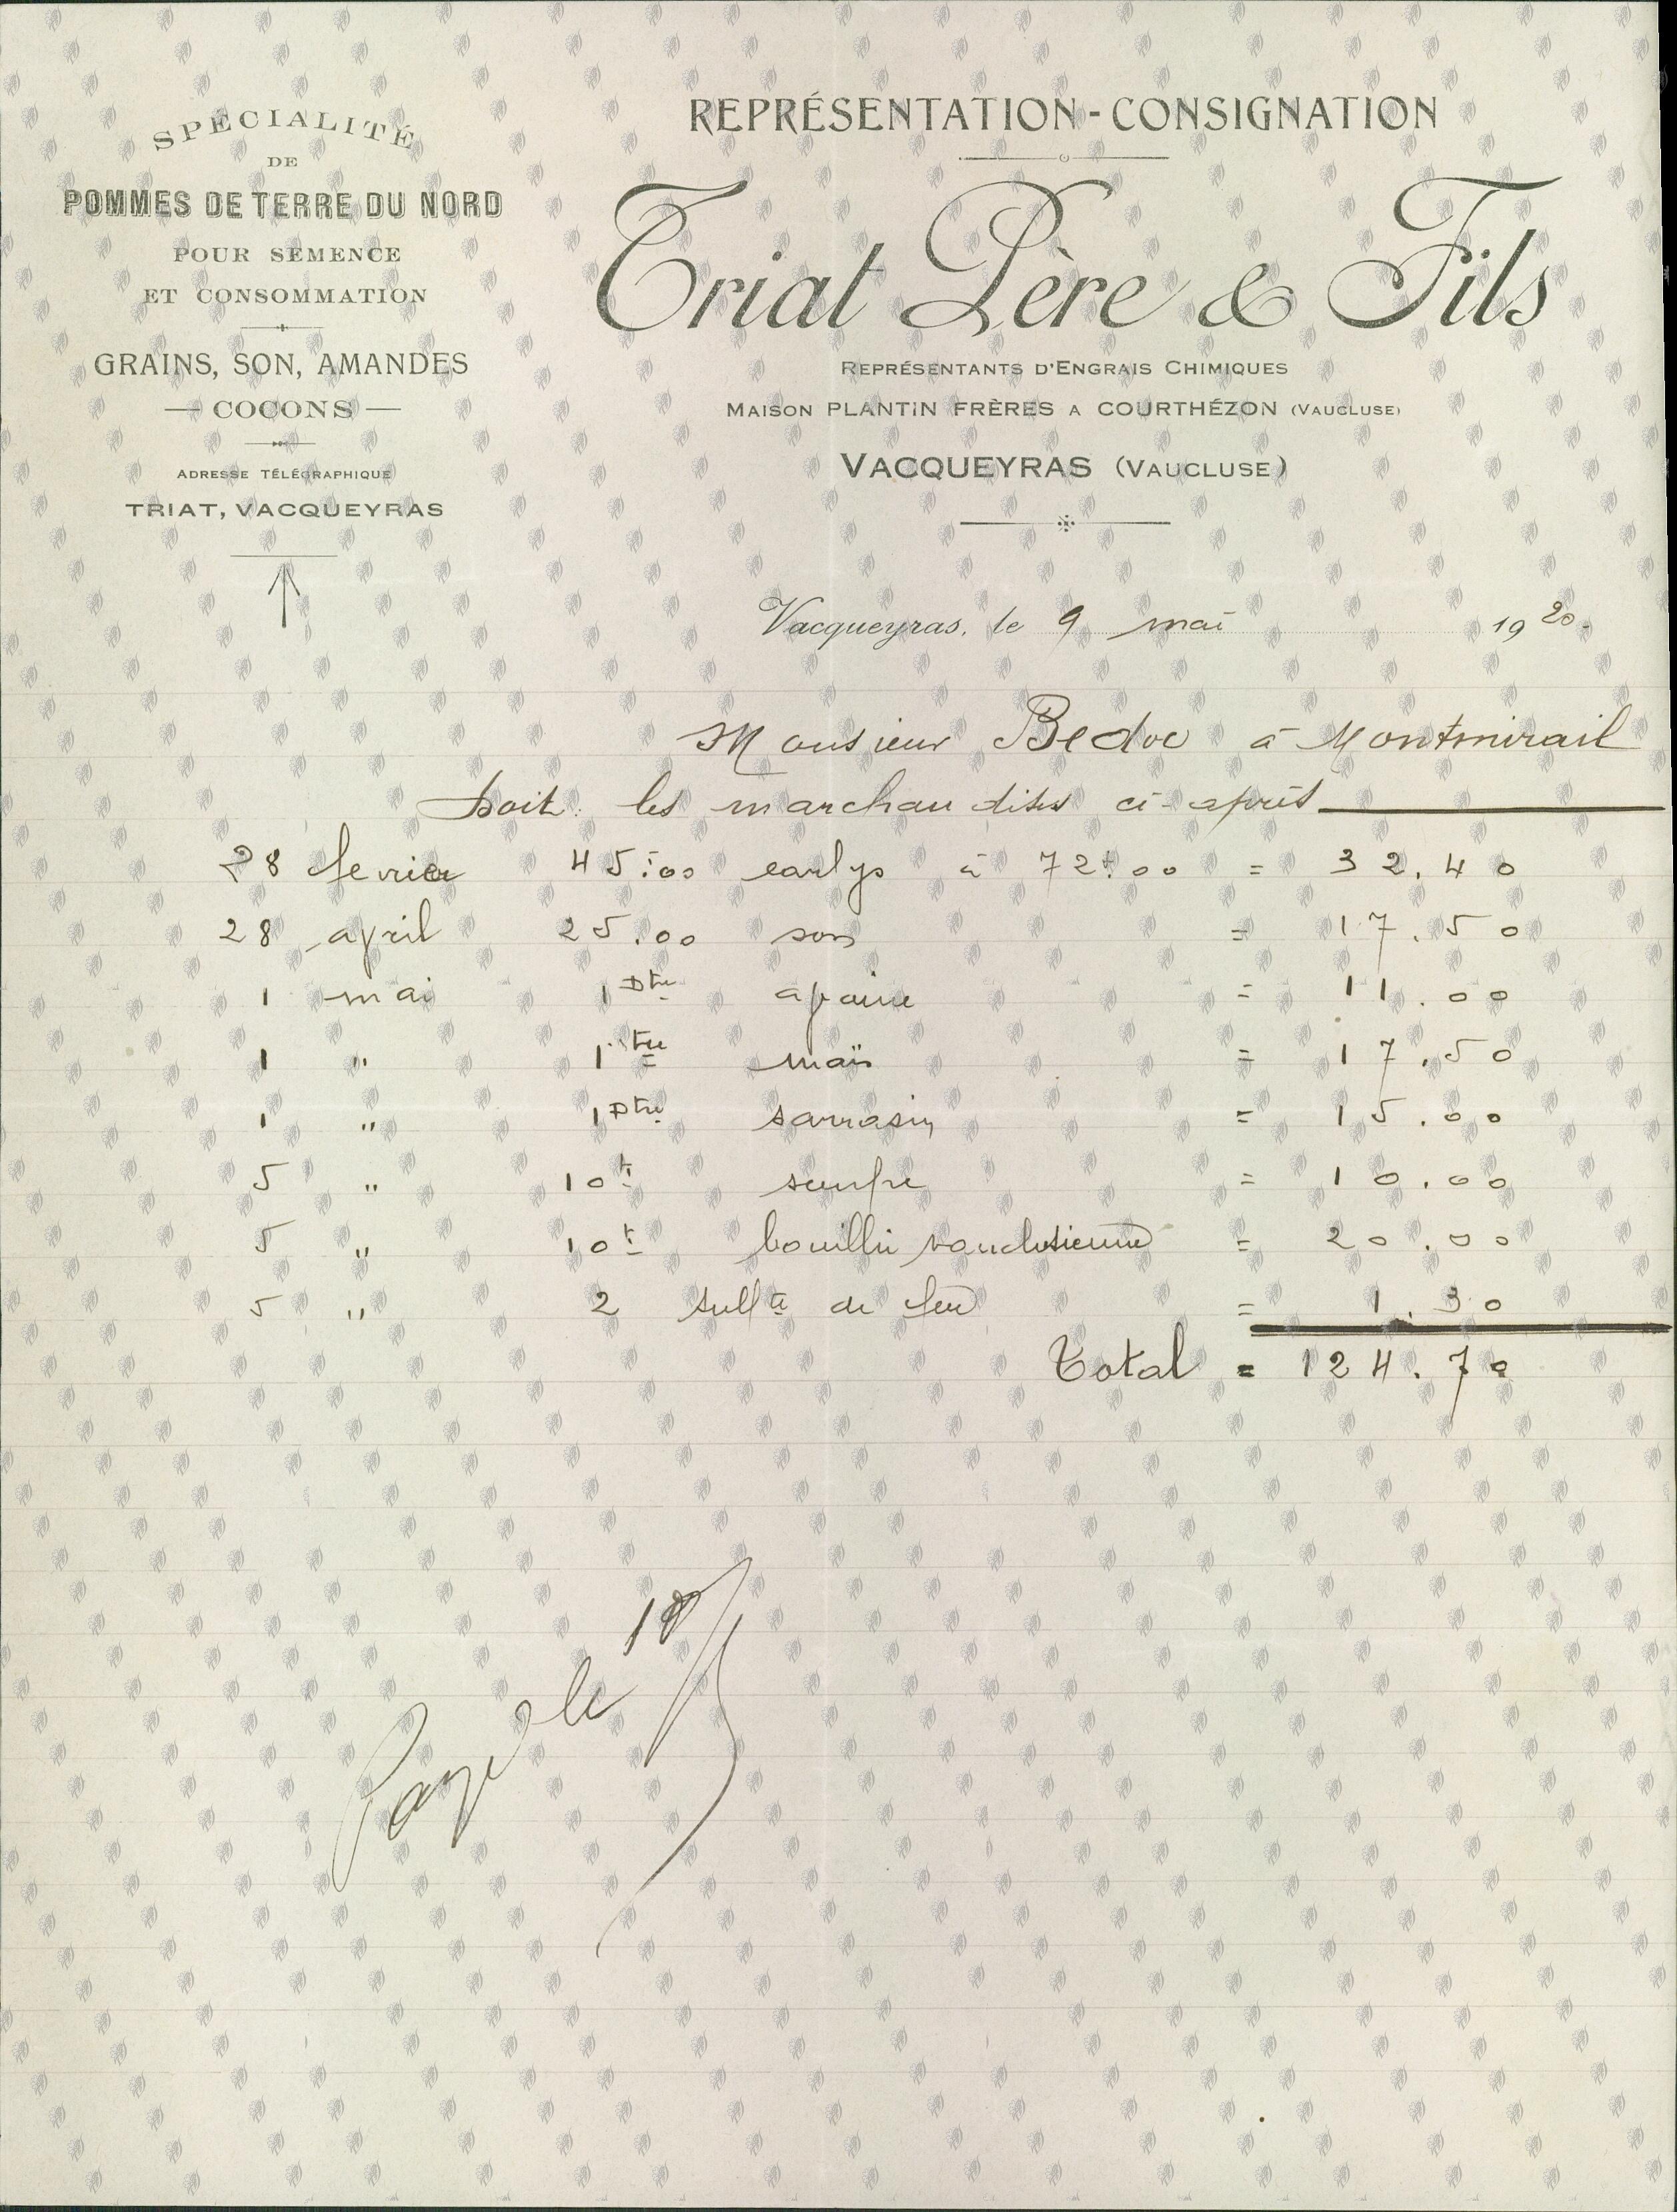 SPÉCIALITÉ
DE
POMMES DE TERRE DU NORD
POUR SEMENCE
ET CONSOMMATION
GRAINS, SON, AMANDES
— COCONS —
ADRESSE TÉLÉGRAPHIQUE
TRIAT, VACQUEYRAS
REPRÉSENTATION - CONSIGNATION
Triat Père & Fils
REPRÉSENTANTS D'ENGRAIS CHIMIQUES
MAISON PLANTIN FRÈRES A COURTHÉZON (VAUCLUSE)
VACQUEYRAS (VAUCLUSE)
Vacqueyras, le 9 mai 1920.
Monsieur Bedoc à Montmirail
Doit: les marchandises ci-après
28 fevrier 45k00 earlys à 72f.00 = 32.40
28 avril 25.00 son = 17.50
1 mai 1 Dtre = 11.00
1 " 1 tre maïs = 17.50
1 " 1 Dtre sarrasin = 15.00
5 " 10k soufre = 10.00
5 " 10k bouillie vauclusienne = 20.00
5 " 2 sulfte de fer = 1.30
Total = 124.70
Payé le 18